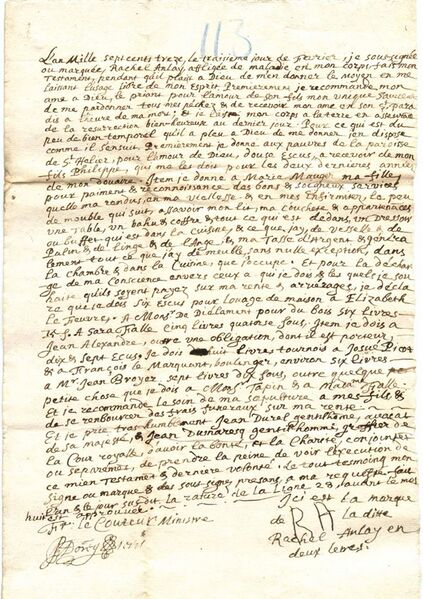 113
L'an Mille sept cents treze, le treisième jour de Fevrier, je sous-signée
ou marquée, Rachel Anlay, affligée de maladie en mon corps, fais mon
Testament, pendant qu'il plaist à Dieu de m'en donner le moyen en me
laissant l'usage libre de mon Esprit. Premierement je recommande mon
ame à Dieu, le priant pour l'amour de son fils mon unique Sauveur
de me pardonner tous mes péchez & de recevoir mon ame en son St para-
dis à l'heure de ma mort, et je laisse mon corps a la terre en assurance
de la resurrection bien-heureuse au dernier jour. Pour ce qui est du
peu de bien temporel qu'il a pleu a Dieu de me donner j'en dispose
comme il s'ensuit. Premierement je donne aux pauvres de la paroisse
de St Helier, pour l'amour de Dieu, douse Escus, a recevoir de mon
fils Philippe, qui me les doit pour les deux dernieres années
de mon douaire. Item je donne a Marie Mauger ma fille
pour paiment & reconnoissance des bons & soigneux services
qu'elle m'a rendus, en ma vieillesse & en mes Enfirmitez, le peu
de meuble qui suit, assavoir mon lit, ma couchette & appartenances
une table, un bahu & coffre, & tout ce qui est dedans, un dressoir
ou buffet qui est dans la cuisine, & ce que j'ay de vesselle & de
& de linge & de & ma Tasse d'Argent & genera
lement tout ce que j'ay de meuble, sans nulle exception, dans
la chambre & dans la Cuisine, que j'occupe. Et pour la dechar
ge de ma Conscience envers ceux a qui je dois & les quels je sou
haite qu'ils soyent payez sur ma rente & arrerages, je decla
re que je dois six escus pour louage de maison a Elizabeth
le Feuvre. A Monsr de Dielament pour du bois six livres
Et A Sara Falle Cinq livres quatorse sous, Item je dois a
Jean Alexandre, outre une obligation, dont il est porteur,
dix & sept Ecus, Je dois huit livres tournois a Josué Picot
& a François le Marquant, boulenger, environ six livres
a Mr Jean Broyer sept livres dix sous, outre quelque pe
petite chose que je dois a Monsr Tapin & a madame Falle.
Et je recommande le soin de ma sepulture a mes fils &
de se rembourser des frais funeraux sur ma rente.
Et je prie tres humblement Jean Durel gentilhomme, avocat
de sa majesté, & Jean Dumaresq gentilhomme, greffier de
la Cour royalle, d'avoir la bonté, et la Charité, conjointes
ou separement, de prendre la peine de voir l'execution de
ce mien Testament & derniere volonté. Le tout tesmoing mon
signe ou marque & des sous signes, presens, a ma requeste fait
l'an & le jour susdit. la rature de la Ligne 28 sur le mot
huit est approuvée.
Fr: le Couteur Ministre
Ici est la marque
de RA la ditte
Rachel Anlay en
deux letres.